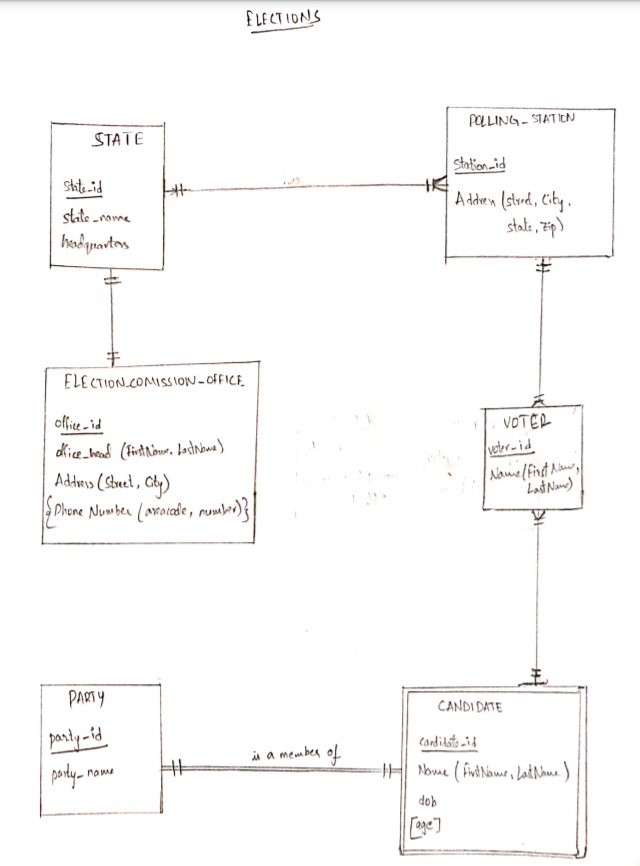 ELECTIONS
STATE
state_id
state_name
headquarters
POLLING_STATION
Station_id
Address (street, City,
state, Zip)
ELECTION_COMISSION_OFFICE
office_id
office_head (FirstName, LastName)
Address (Street, City)
{Phone Number (areacode, number)}
VOTER
voter_id
Name (First Name,
Last Name)
PARTY
party_id
party_name
is a member of
CANDIDATE
candidate_id
Name (FirstName, LastName)
dob
[age]